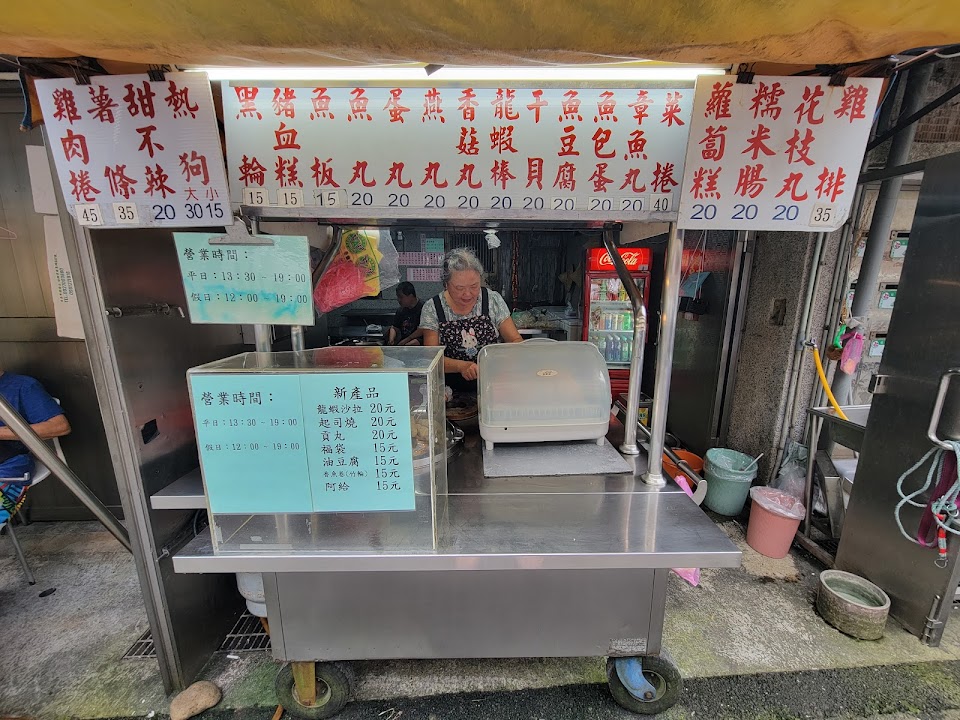 雞肉捲 45
薯條 35
甜不辣 20
熱狗 大30 小15
黑輪 15
豬血糕 15
魚板 15
魚丸 20
蛋丸 20
燕丸 20
香菇丸 20
龍蝦棒 20
干貝 20
魚豆腐 20
魚包蛋 20
章魚丸 20
菜捲 40
蘿蔔糕 20
糯米腸 20
花枝丸 20
雞排 35
營業時間：
平日：13:30-19:00
假日：12:00-19:00
營業時間：
平日：13:30-19:00
假日：12:00-19:00
新產品
龍蝦沙拉 20元
起司燒 20元
貢丸 20元
福袋 15元
油豆腐 15元
香魚卷(竹輪) 15元
阿給 15元
Coca-Cola